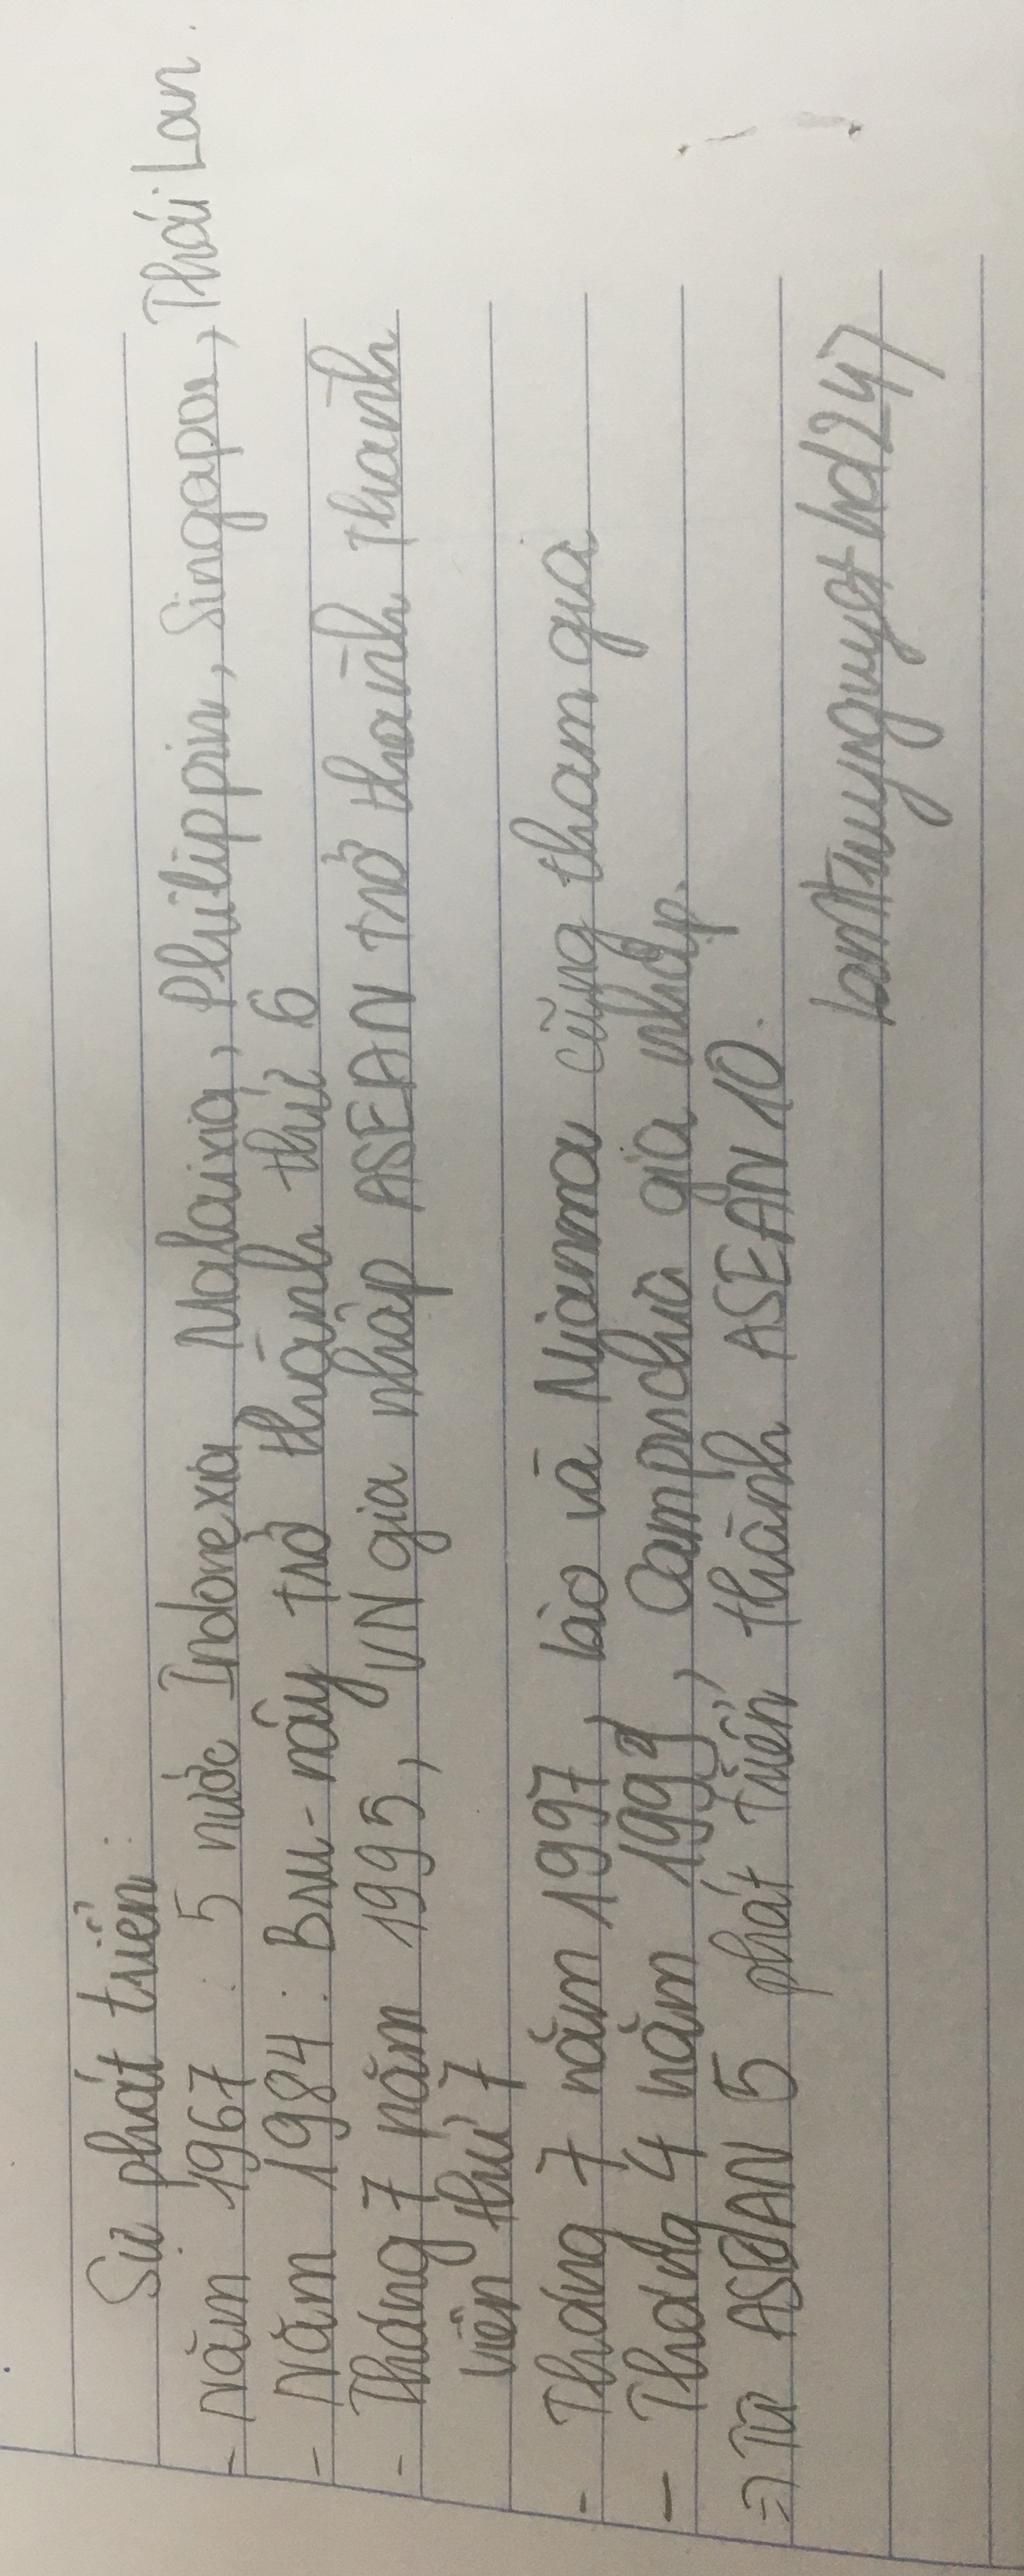 Sự phát triển:
- Năm 1967: 5 nước Indonexia, Malaixia, Philippin, Singapor, Thái Lan.
- Năm 1984: Bru-nây trở thành thứ 6
- Tháng 7 năm 1995, VN gia nhập ASEAN trở thành thành
viên thứ 7
- Tháng 7 năm 1997, Lào và Mianma cũng tham gia
- Tháng 4 năm 1999, Campuchia gia nhập.
=> Từ ASEAN 5 phát triển, thành ASEAN 10.
lamthuynguyethd247